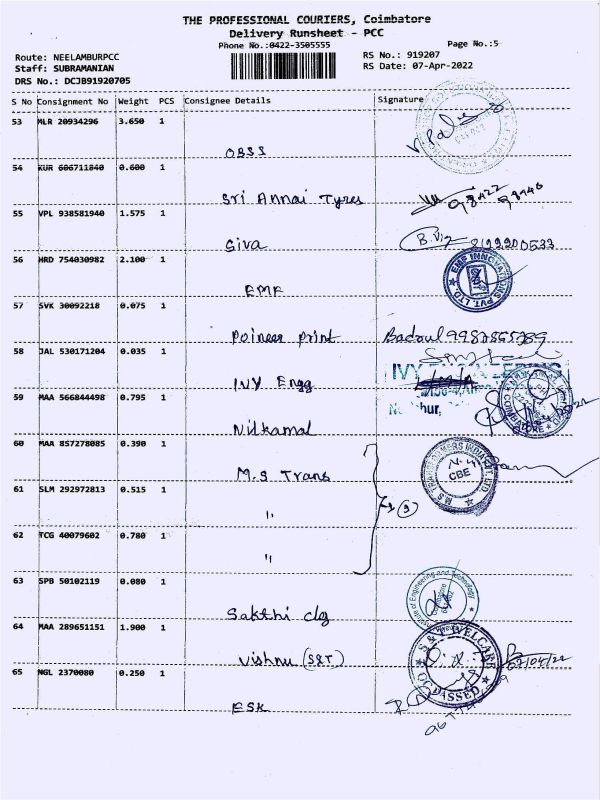 THE PROFESSIONAL COURIERS, Coimbatore
Delivery Runsheet - PCC
Phone No.:0422-3505555
Page No.:5
Route: NEELAMBURPCC
Staff: SUBRAMANIAN
DRS No.: DCJB91920705
RS No.: 919207
RS Date: 07-Apr-2022
S No Consignment No Weight PCS Consignee Details Signature
53 MLR 20934296 3.650 1
OBSS
54 KUR 606711840 0.600 1
Sri Annai Tyres
55 VPL 938581940 1.575 1
Siva
56 MRD 754030982 2.100 1
EMF
EMF INNOVATIONS PVT. LTD.
57 SVK 30092218 0.075 1
Poineer print
58 JAL 530171204 0.035 1
IVY Engg
59 MAA 566844498 0.795 1
Nilkamal
60 MAA 857278085 0.390 1
M.S Trans
CBE
61 SLM 292972813 0.515 1
"
3
62 TCG 40079602 0.780 1
"
63 SPB 50102119 0.080 1
Sakthi clg
Institute of Engineering and Technology
64 MAA 289651151 1.900 1
Vishnu (S&T)
S & T WELCARE
QC PASSED
65 NGL 2370080 0.250 1
ESK